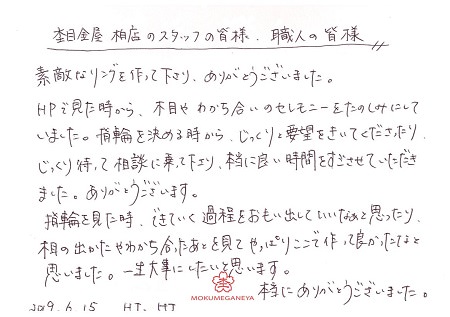 杢目金屋 柏店のスタッフの皆様、職人の皆様
素敵なリングを作って下さり、ありがとうございました。
HPで見た時から、木目や わかち合いのセレモニーをたのしみにして
いました。指輪を決める時から、じっくりと要望をきいてくださったり、
じっくり待って相談に乗って下さり、本当に良い時間をすごさせていただき
ました。ありがとうございます。
指輪を見た時、できていく過程をおもい出していいなぁと思ったり、
木目の出かたやわかち合ったあとを見てやっぱりここで作って良かったなと
思いました。一生大事にしたいと思います。
本当にありがとうございました。
MOKUMEGANEYA
2019.6.15 H.I, H.I